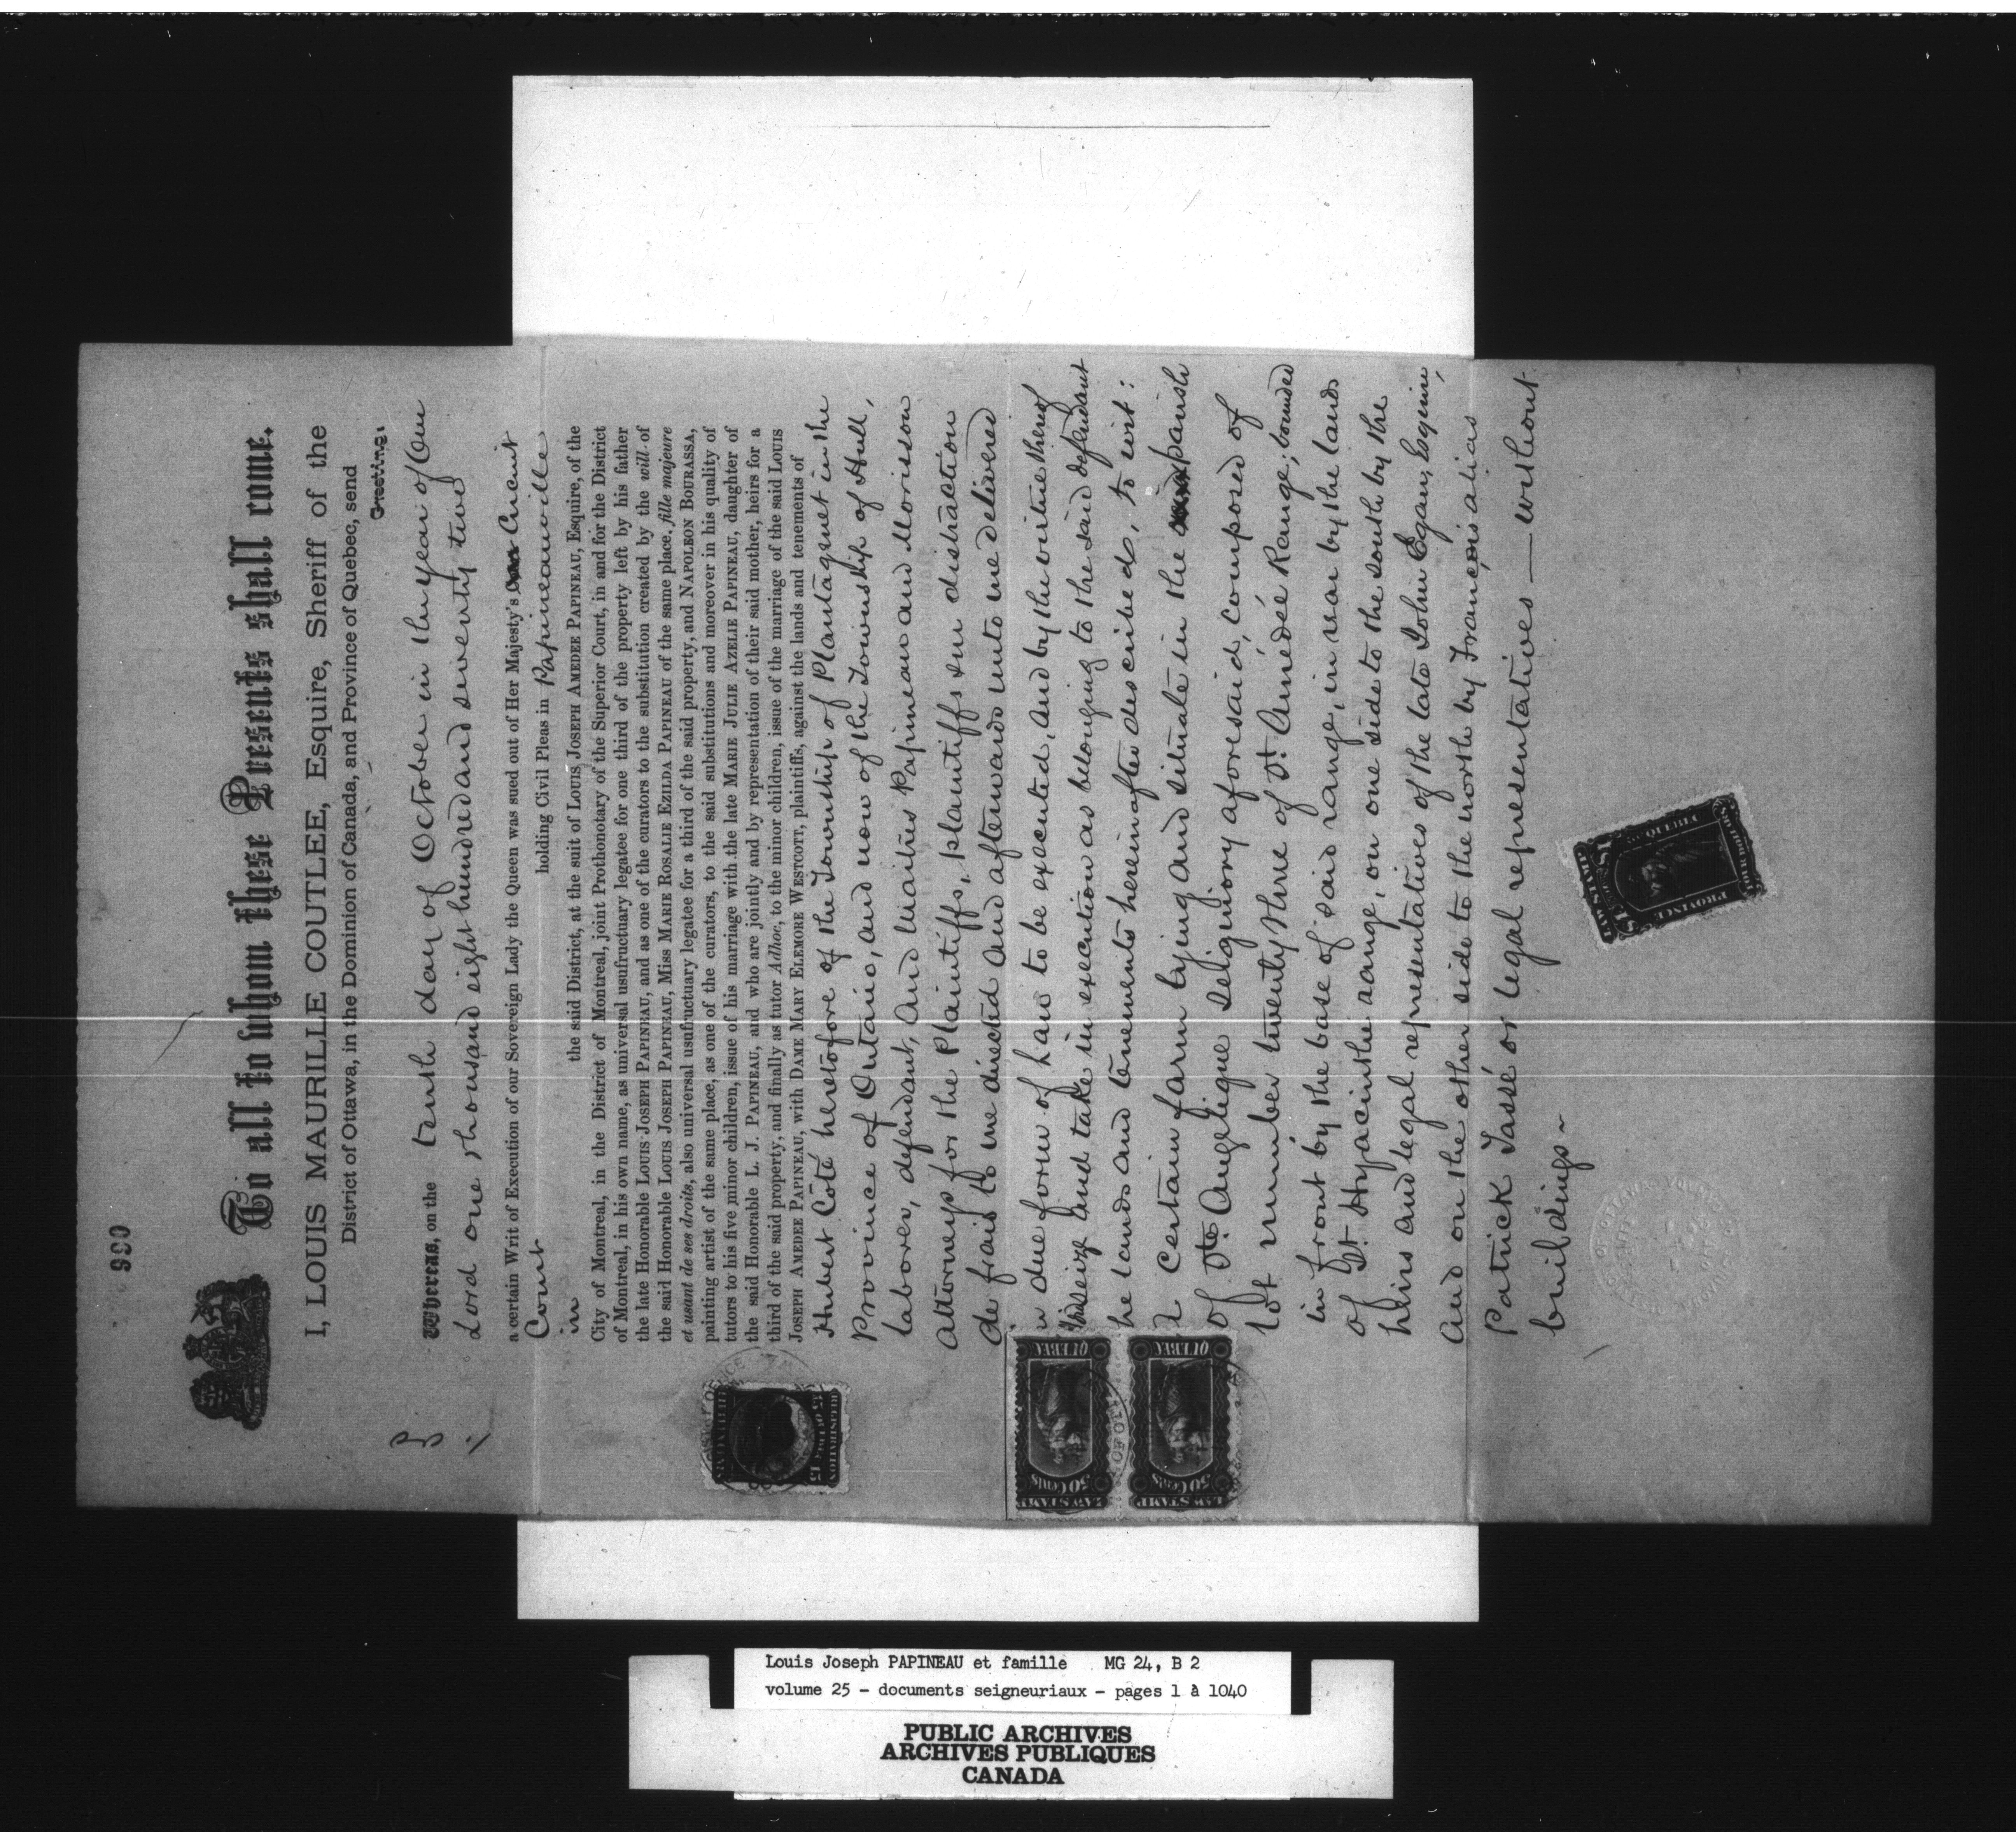 930
To all to whom these Presents shall come.
I, LOUIS MAURILLE COUTLEE, Esquire, Sheriff of the
District of Ottawa, in the Dominion of Canada, and Province of Quebec, send
Greeting.
Whereas, on the tenth day of October in the year of Our
Lord one thousand eight hundred and seventy two
a certain Writ of Execution of our Sovereign Lady the Queen was sued out of Her Majesty's Circuit
Court holding Civil Pleas in Papineauville
in the said District, at the suit of LOUIS JOSEPH AMEDEE PAPINEAU, Esquire, of the
City of Montreal, in the District of Montreal, joint Prothonotary of the Superior Court, in and for the District
of Montreal, in his own name, as universal usufructuary legatee for one third of the property left by his father
the late Honorable LOUIS JOSEPH PAPINEAU, and as one of the curators to the substitution created by the will of
the said Honorable LOUIS JOSEPH PAPINEAU, Miss MARIE ROSALIE EZILDA PAPINEAU of the same place, fille majeure
et usant de ses droits, also universal usufructuary legatee for a third of the said property, and NAPOLEON BOURASSA,
painting artist of the same place, as one of the curators, to the said substitutions and moreover in his quality of
tutors to his five minor children, issue of his marriage with the late MARIE JULIE AZELIE PAPINEAU, daughter of
the said Honorable L. J. PAPINEAU, and who are jointly and by representation of their said mother, heirs for a
third of the said property, and finally as tutor Adhoc, to the minor children, issue of the marriage of the said LOUIS
JOSEPH AMEDEE PAPINEAU, with DAME MARY ELEMORE WESTCOTT, plaintiffs, against the lands and tenements of
Hubert Coté heretofore of the Township of Plantagenet in the
Province of Ontario, and now of the Township of Hull,
laborer, defendant, and Maitres Papineau and Morisson
attorneys for the Plaintiffs, plaintiffs sur distraction
de frais to me directed and afterwards unto me delivered
n due form of law to be executed, and by the virtue thereof
I did seize and take in execution as belonging to the said defendant
he lands and tenements hereinafter described, to wit:
A certain farm lying and situate in the parish
of Ste Angelique Seigniory aforesaid, composed of
lot number twenty three of St. Amédée Range; bounded
in front by the base of said range, in rear by the lands
of St. Hyacinthe range, on one side to the south by the
heirs and legal representatives of the late John Egan, Esquire,
and on the other side to the north by François alias
Patrick Tassé or legal representatives — without
buildings ~
REGISTRATION
15
LAW STAMP
50 Cents
QUEBEC
LAW STAMP
50 Cents
QUEBEC
LAW STAMP
$1
$1
PROVINCE
QUEBEC
Louis Joseph PAPINEAU et famille MG 24, B 2
volume 25 - documents seigneuriaux - pages 1 à 1040
PUBLIC ARCHIVES
ARCHIVES PUBLIQUES
CANADA